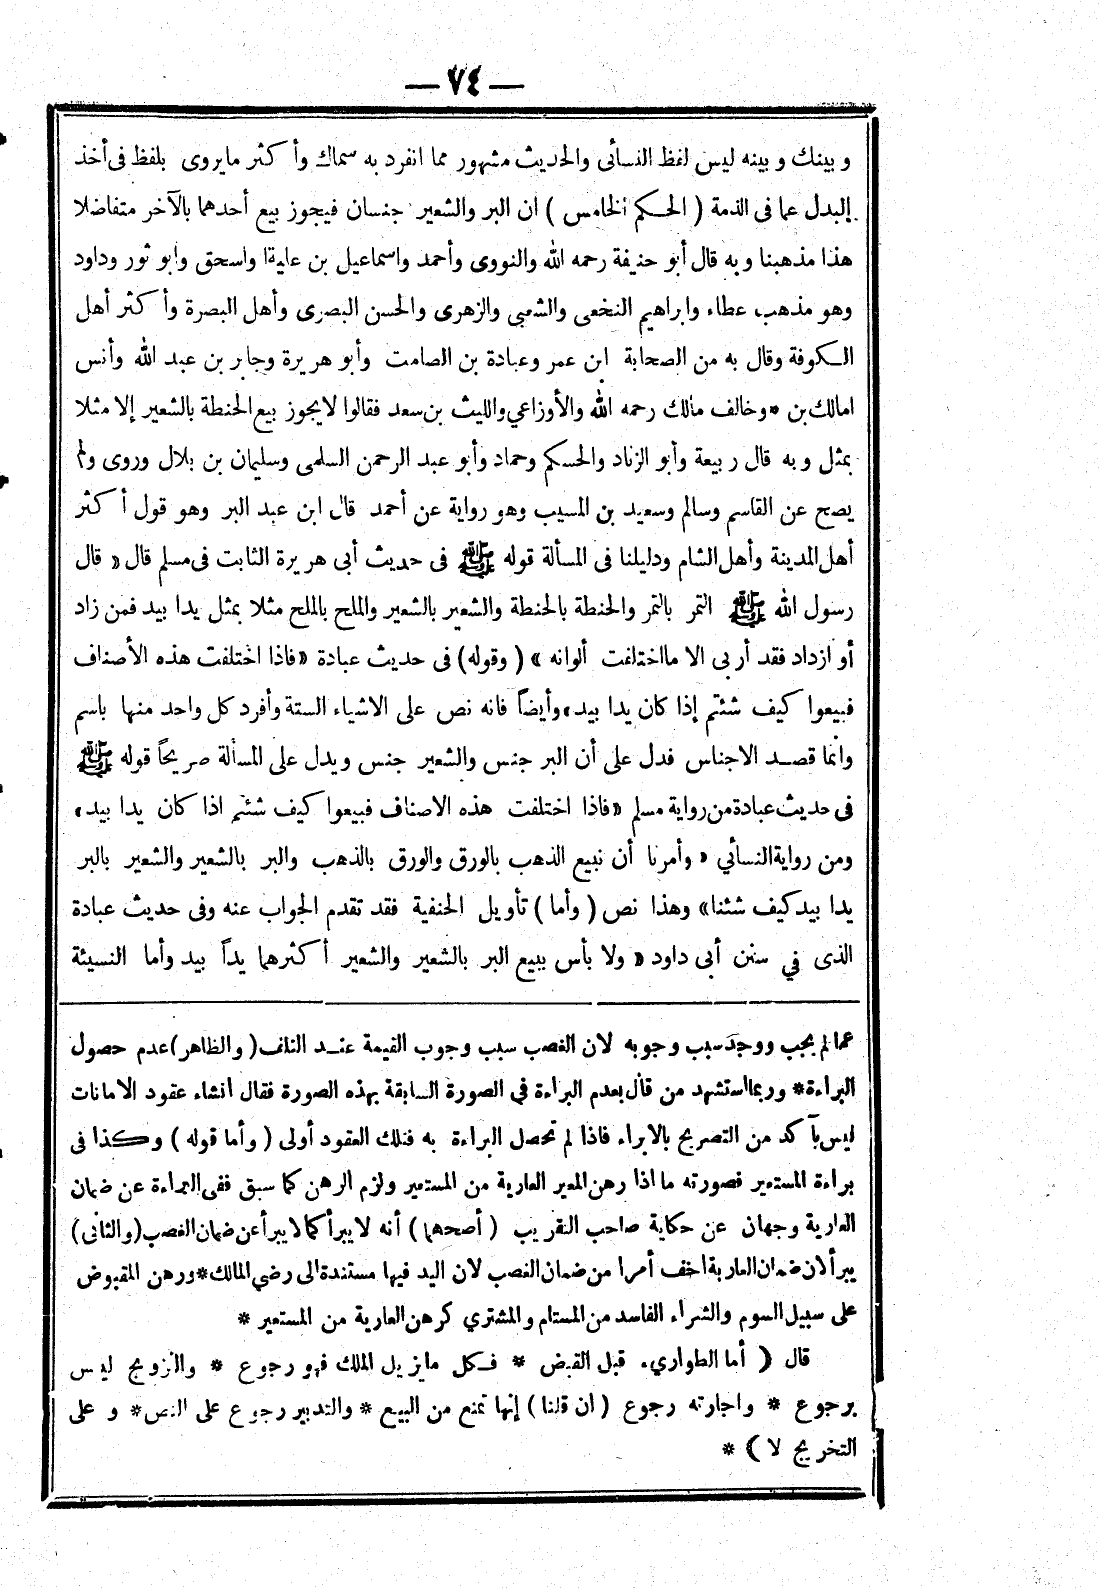 — ٧٤ —
وبينك وبينه ليس لفظ النسائى والحديث مشهور مما انفرد به سماك وأكثر مايروى بلفظ فى أخذ
البدل عما فى الذمة ( الحكم الخامس ) ان البر والشعير جنسان فيجوز بيع أحدهما بالآخر متفاضلا
هذا مذهبنا وبه قال أبو حنيفة رحمه الله والنووى وأحمد واسماعيل بن علية واسحق وأبو ثور وداود
وهو مذهب عطاء وابراهيم النخعى والشعبى والزهرى والحسن البصرى وأهل البصرة وأكثر أهل
الكوفة وقال به من الصحابة ابن عمر وعبادة بن الصامت وأبو هريرة وجابر بن عبد الله وأنس
امالك بن * وخالف مالك رحمه الله والأوزاعي والليث بن سعد فقالوا لايجوز بيع الحنطة بالشعير إلا مثلا
بمثل وبه قال ربيعة وأبو الزناد والحكم وحماد وأبو عبد الرحمن السلمى وسليمان بن بلال وروى ولم
يصح عن القاسم وسالم وسعيد بن المسيب وهو رواية عن أحمد قال ابن عبد البر وهو قول أكثر
أهل المدينة وأهل الشام ودليلنا فى المسألة قوله ﷺ فى حديث أبى هريرة الثابت فى مسلم قال « قال
رسول الله ﷺ التمر بالتمر والحنطة بالحنطة والشعير بالشعير والملح بالملح مثلا بمثل يدا بيد فمن زاد
أو ازداد فقد أربى الا مااختلفت ألوانه » ( وقوله) فى حديث عبادة «فاذا اختلفت هذه الأصناف
فبيعوا كيف شئتم إذا كان يدا بيد» وأيضاً فانه نص على الاشياء الستة وأفرد كل واحد منها باسم
وانما قصد الاجناس فدل على أن البر جنس والشعير جنس ويدل على المسألة صريحاً قوله ﷺ
فى حديث عبادة من رواية مسلم «فاذا اختلفت هذه الاصناف فبيعوا كيف شئتم اذا كان يدا بيد»
ومن رواية النسأئي « وأمرنا أن نبيع الذهب بالورق والورق بالذهب والبر بالشعير والشعير بالبر
يدا بيد كيف شئنا» وهذا نص ( وأما ) تأويل الحنفية فقد تقدم الجواب عنه وفى حديث عبادة
الذى في سنن أبى داود « ولا بأس ببيع البر بالشعير والشعير أكثرهما يداً بيد وأما النسيئة
عمالم يجب ووجد سبب وجوبه لان الغصب سبب وجوب القيمة عند التلف ( والظاهر) عدم حصول
البراءة* وربما استشهد من قال بعدم البراءة في الصورة السابقة بهذه الصورة فقال انشاء عقود الامانات
ليس بآكد من التصريح بالابراء فاذا لم تحصل البراءة به فتلك العقود أولى ( وأما قوله ) وكذا فى
براءة المستعير فصورته ما اذا رهن المعير العارية من المستعير ولزم الرهن كما سبق ففى البراءة عن ضمان
العارية وجهان عن حكاية صاحب التقريب ( أصحهما ) أنه لا يبرأ كما لا يبرأ عن ضمان الغصب (والثانى)
يبرأ لان ضمان العارية اخف أمرا من ضمان الغصب لان اليد فيها مستندة الى رضي المالك* ورهن المقبوض
على سبيل السوم والشراء الفاسد من المستام والمشتري كرهن العارية من المستعير *
قال ( أما الطواري، قبل القبض * فكل مايزيل الملك فهو رجوع * والتزويج ليس
برجوع * واجارته رجوع ( ان قلنا ) إنها تمنع من البيع * والتدبير رجوع على النص* وعلى
التخريج لا ) *